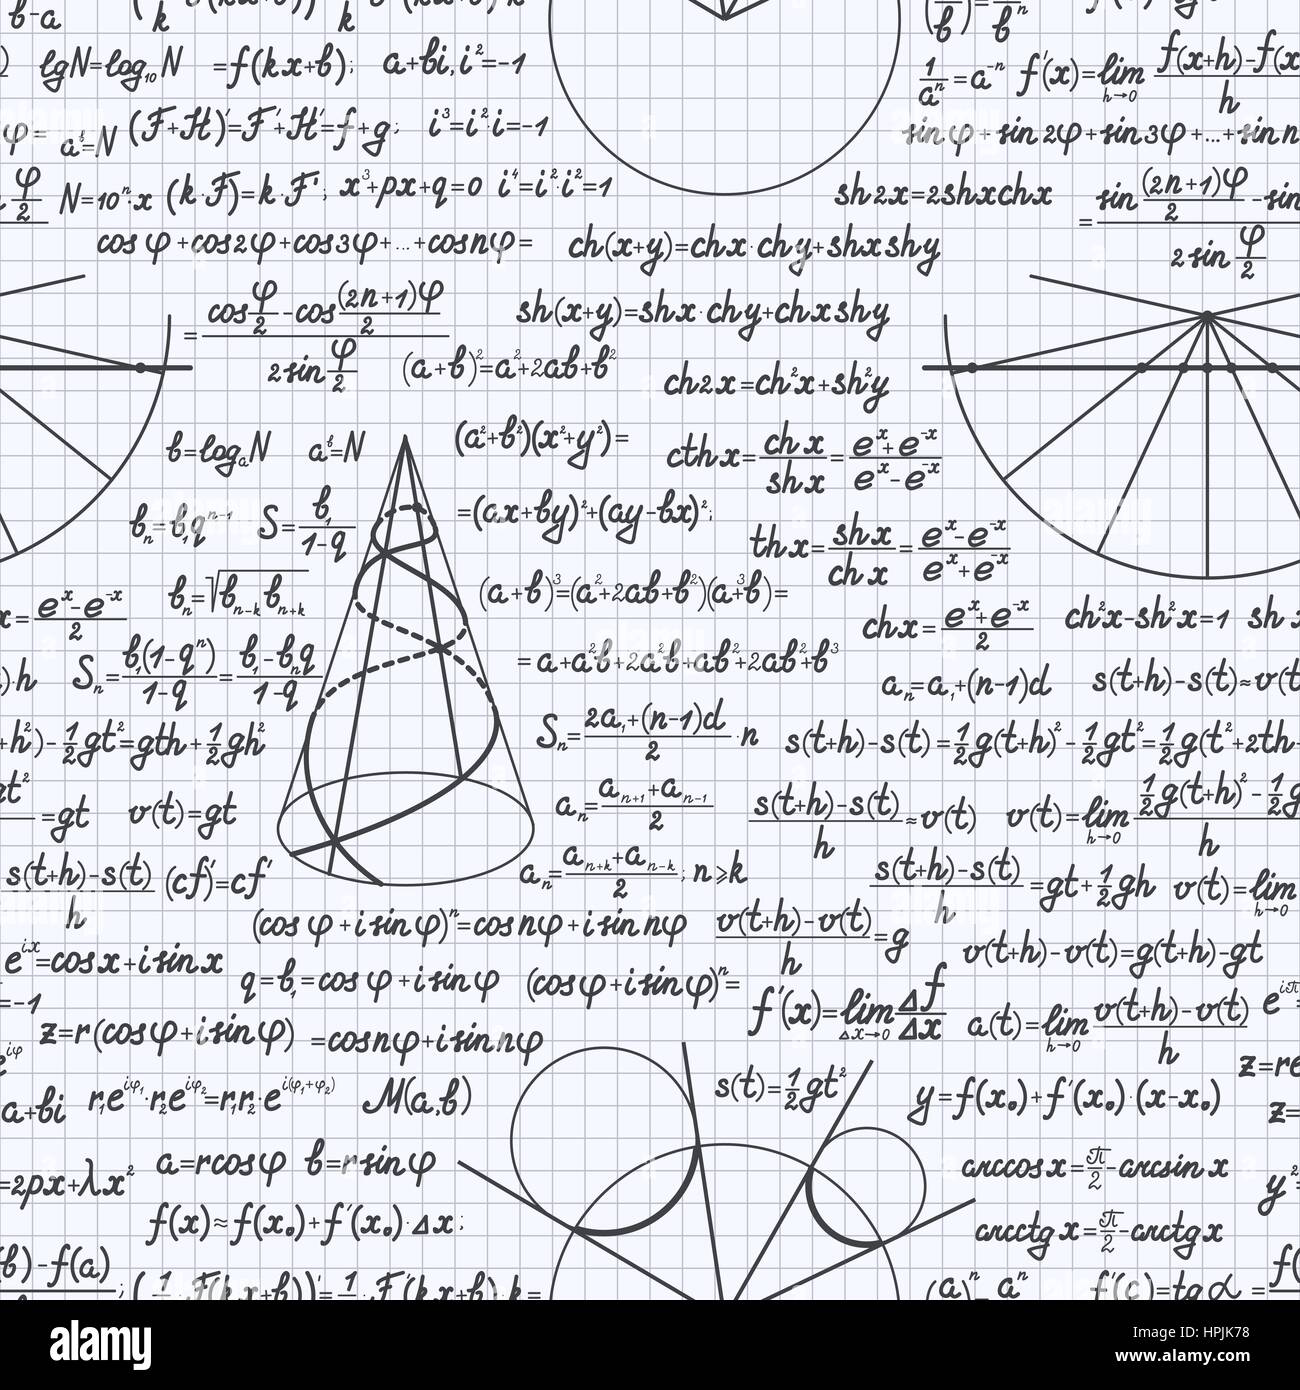 b-a
lgN=log₁₀N =f(kx+b); a+bi, i²=-1
1/aⁿ=a⁻ⁿ f'(x)=lim h→0 f(x+h)-f(x
φ= aᵇ=N (F+H)'=F'+H'=f+g; i³=i²·i=-1
sinφ+sin2φ+sin3φ+...+sin n
φ/2 N=10ⁿ·x (k·F)=k·F'; x³+px+q=0 i⁴=i²·i²=1
sh2x=2shxchx
= sin (2n+1)φ/2 -sin / 2sin φ/2
cosφ+cos2φ+cos3φ+...+cosnφ=
ch(x+y)=chx·chy+shxshy
= cos φ/2 -cos (2n+1)φ/2 / 2sin φ/2
sh(x+y)=shx·chy+chxshy
(a+b)²=a²+2ab+b²
ch2x=ch²x+sh²y
b=logₐN aᵇ=N
(a²+b²)(x²+y²)=
cthx= chx/shx = eˣ+e⁻ˣ/eˣ-e⁻ˣ
bₙ=b₁qⁿ⁻¹ S= b₁/1-q
=(ax+by)²+(ay-bx)²;
thx= shx/chx = eˣ-e⁻ˣ/eˣ+e⁻ˣ
bₙ=√bₙ₋ₖbₙ₊ₖ
(a+b)³=(a²+2ab+b²)(a³+b)=
x= eˣ-e⁻ˣ/2
chx= eˣ+e⁻ˣ/2 ch²x-sh²x=1 sh x
)·h Sₙ= b₁(1-qⁿ)/1-q = b₁-bₙq/1-q
=a+a²b+2a²b+ab²+2ab²+b³
aₙ=a₁+(n-1)d s(t+h)-s(t)≈v(t
+h²)-1/2gt²=gth+1/2gh²
Sₙ= 2a₁+(n-1)d/2 ·n
s(t+h)-s(t)=1/2g(t+h)²-1/2gt²=1/2g(t²+2th-
gt² =gt v(t)=gt
aₙ= aₙ₊₁+aₙ₋₁/2
s(t+h)-s(t)/h ≈v(t) v(t)=lim h→0 1/2g(t+h)²-1/2g / h
s(t+h)-s(t)/h (cf)'=cf'
aₙ= aₙ₊ₖ+aₙ₋ₖ/2; n⩾k
s(t+h)-s(t)/h =gt+1/2gh v(t)=lim h→0
(cosφ+isinφ)ⁿ=cosnφ+isinnφ
v(t+h)-v(t)/h =g
v(t+h)-v(t)=g(t+h)-gt
eⁱˣ=cosx+isinx
q=b₁=cosφ+isinφ (cosφ+isinφ)ⁿ=
=-1
f'(x)=lim Δx→0 Δf/Δx
a(t)=lim h→0 v(t+h)-v(t)/h
z=r(cosφ+isinφ) =cosnφ+isinnφ
z=re
a+bi r₁e^iφ₁·r₂e^iφ₂=r₁r₂·e^i(φ₁+φ₂) M(a,b)
s(t)=1/2gt²
y=f(x₀)+f'(x₀)·(x-x₀) z=
=2px+λx² a=rcosφ b=rsinφ
arccosx=π/2-arcsinx y²
f(x)≈f(x₀)+f'(x₀)·Δx;
arcctgx=π/2-arctgx
b)-f(a) ; (1 F(kx+b))'=1 F'(kx+b)·k=
(a)ⁿ aⁿ f'(c)=tgα=
alamy
Image ID: HPJK78
www.alamy.com